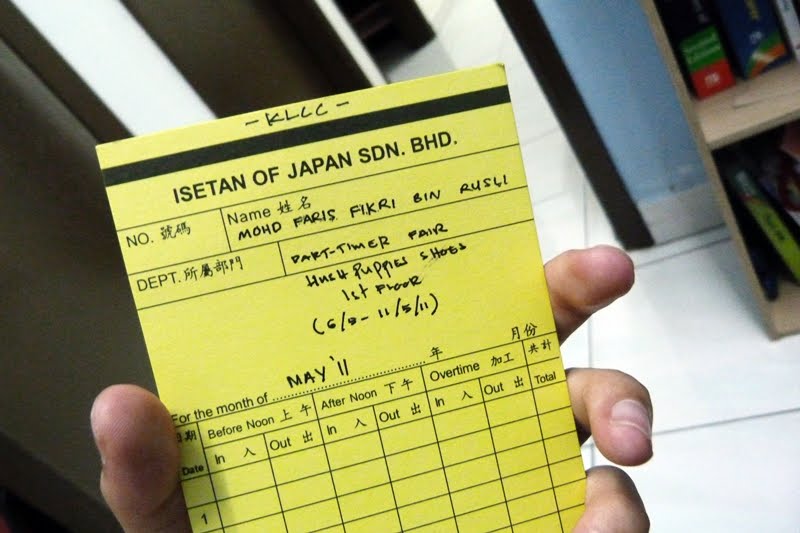 - KLCC -
ISETAN OF JAPAN SDN. BHD.
NO. 號碼
Name 姓名
MOHD FARIS FIKRI BIN RUSLI
DEPT. 所屬部門
PART-TIMER FAIR
HUSH PUPPIES SHOES
1st FLOOR
(6/5 - 11/5/11)
For the month of MAY '11 年 月份
日期 Date
Before Noon 上午
After Noon 下午
Overtime 加工
共計 Total
In 入 Out 出 In 入 Out 出 In 入 Out 出
1